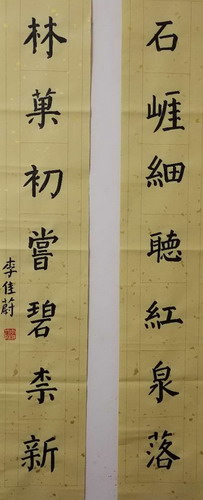 石崕細聽紅泉落
林菓初嘗碧柰新
李佳蔚